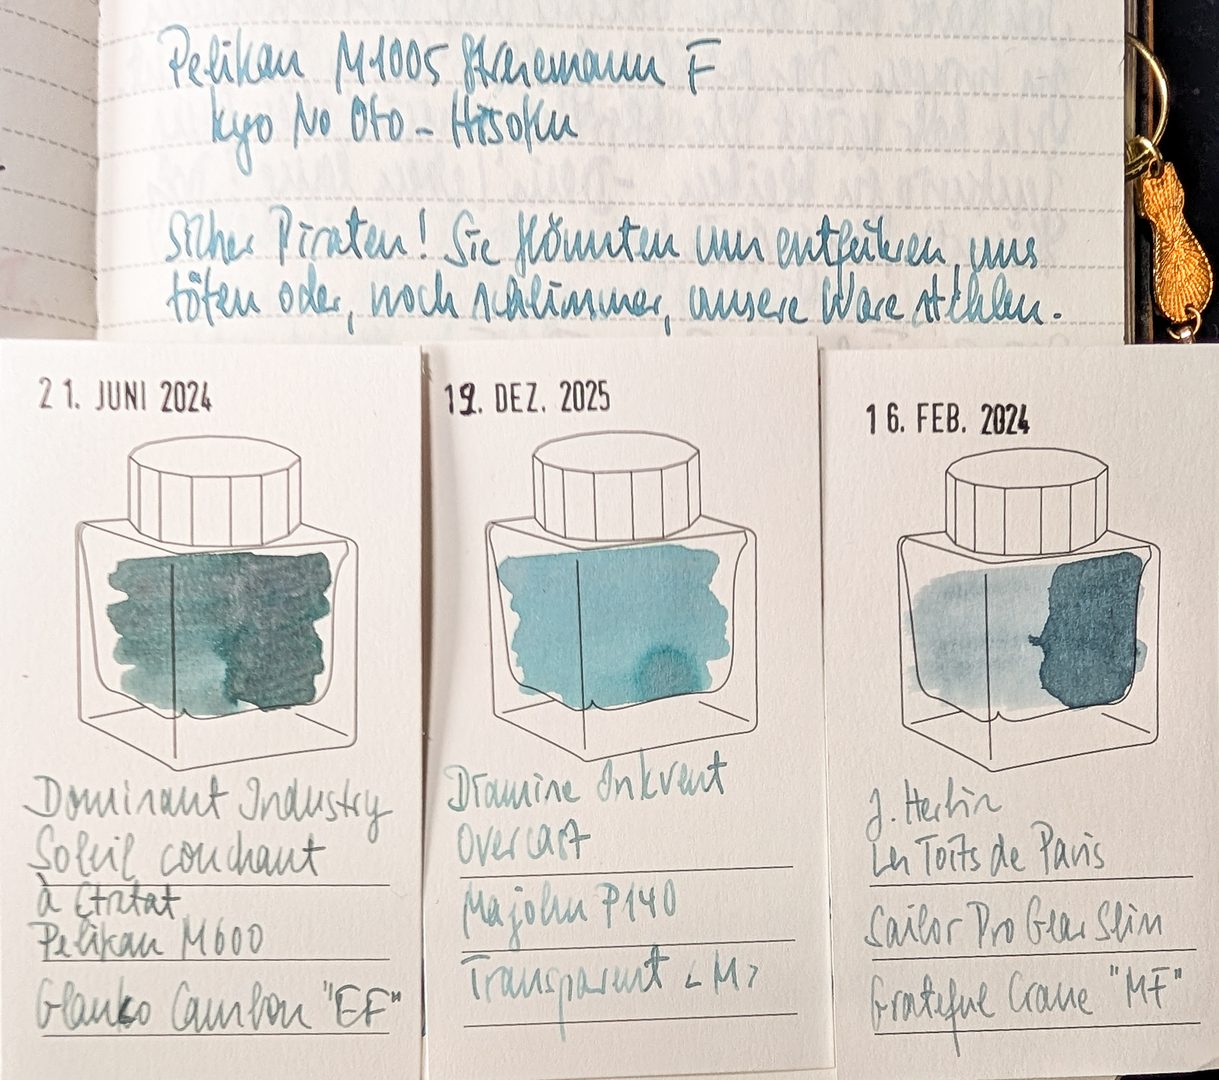 Pelikan M1005 Stresemann F
Kyo No Oto - Hisoku
Sicher Piraten! Sie könnten uns entführen, uns
töten oder, noch schlimmer, unsere Ware stehlen.
21. JUNI 2024
Dominant Industry
Soleil couchant
à Etretat
Pelikan M600
Glauko Cambon "EF"
19. DEZ. 2025
Diamine Inkvent
Overcast
Majohn P140
Transparent <M>
16. FEB. 2024
J. Herbin
Les Toits de Paris
Sailor Pro Gear Slim
Grateful Crane "MF"